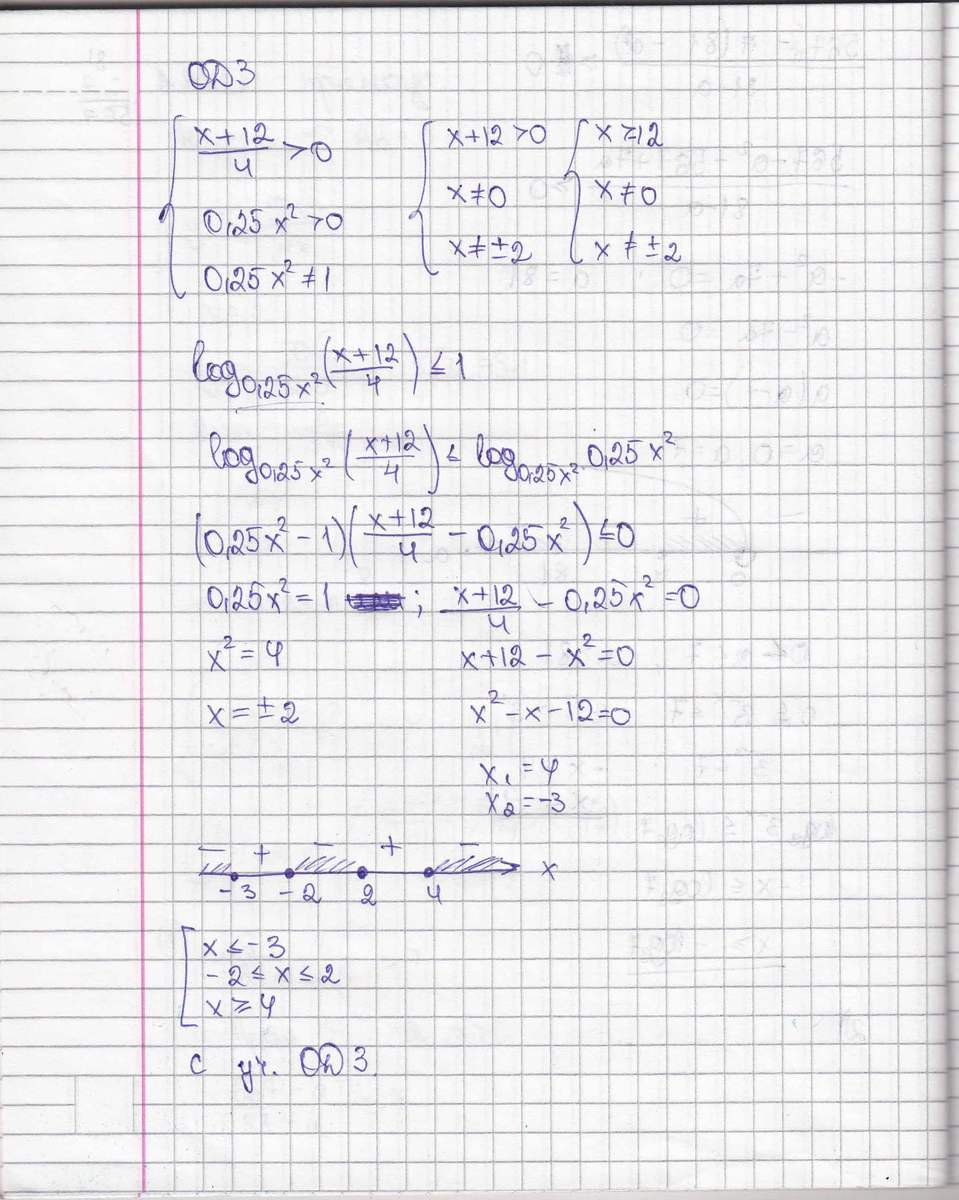 ОДЗ
{ (x+12)/4 > 0 { x+12 > 0 { x ⩾ 12
0,25x² > 0 x ≠ 0 x ≠ 0
0,25x² ≠ 1 x ≠ ±2 x ≠ ±2
log_{0,25x²} ((x+12)/4) ≤ 1
log_{0,25x²} ((x+12)/4) ≤ log_{0,25x²} 0,25x²
(0,25x² − 1)((x+12)/4 − 0,25x²) ≤ 0
0,25x² = 1 ; (x+12)/4 − 0,25x² = 0
x² = 4 x+12 − x² = 0
x = ±2 x² − x − 12 = 0
x₁ = 4
x₂ = −3
− + − + −
−3 −2 2 4 x
[ x ≤ −3
−2 ≤ x ≤ 2
x ⩾ 4
с уч. ОДЗ